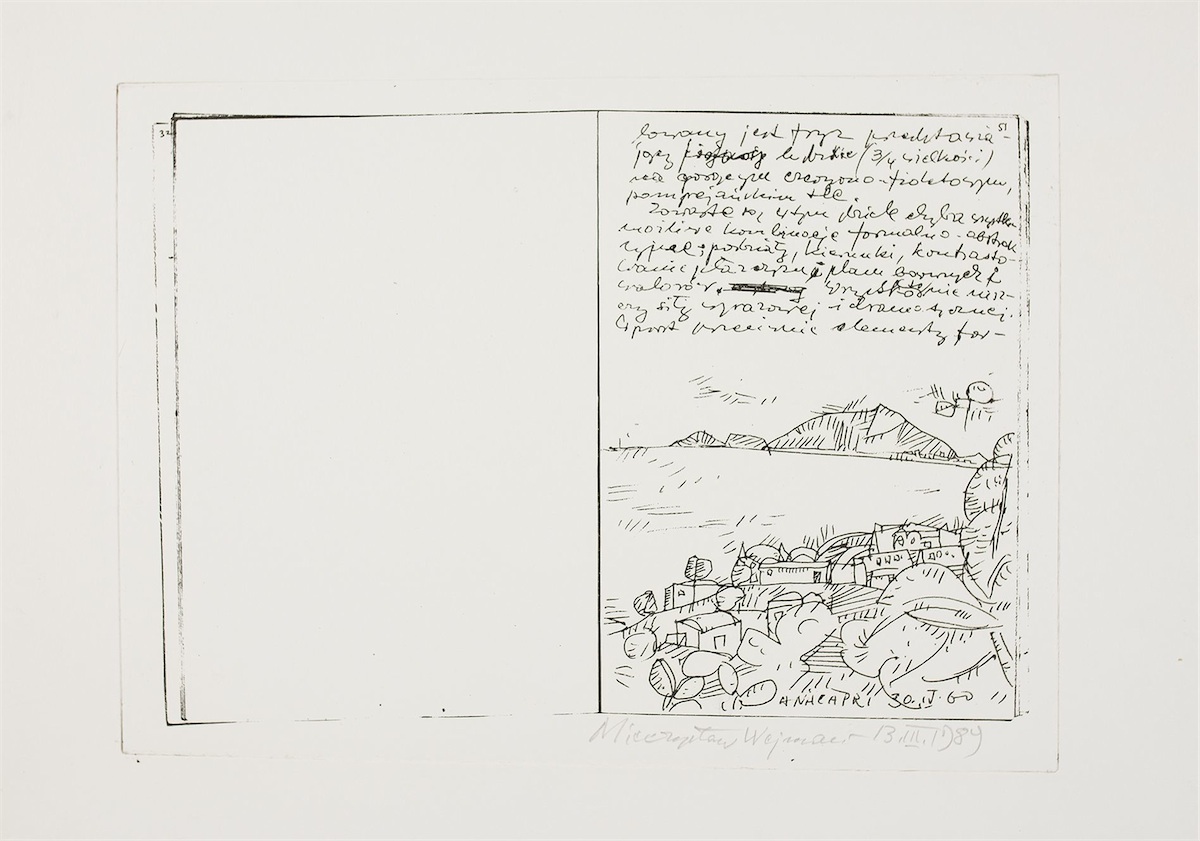 32
51
lowany jest fryz przedstawia-
jący ludzkie (3/4 wielkości)
na gorącym czerwono-fioletowym,
pompejańskim tle.
Zawarte są w tym dziele chyba wszystkie
możliwe kombinacje formalno-abstrak
cyjne; podziały, kierunki, kontrasto-
wanie płaszczyzn, plam barwnych i
walorów, Wszystko nie nisz-
czy siły wyrazowej i dramatycznej.
przeciwnie elementy for-
ANACAPRI 30.IV.60
Mieczysław Wejman 13.III.1984